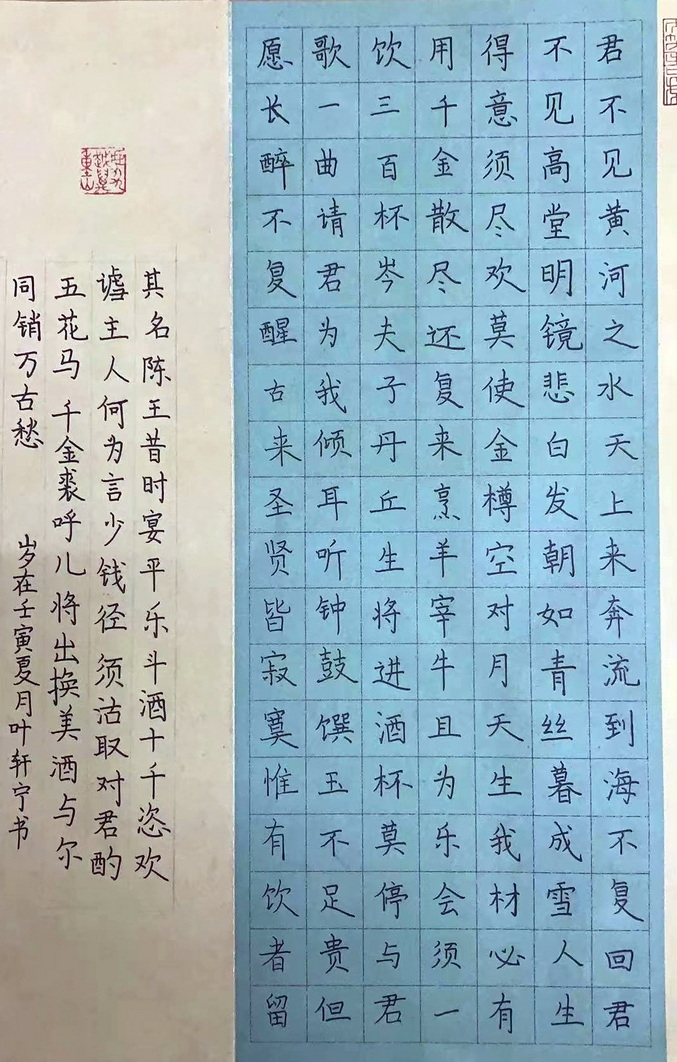 君不见黄河之水天上来奔流到海不复回君
不见高堂明镜悲白发朝如青丝暮成雪人生
得意须尽欢莫使金樽空对月天生我材必有
用千金散尽还复来烹羊宰牛且为乐会须一
饮三百杯岑夫子丹丘生将进酒杯莫停与君
歌一曲请君为我倾耳听钟鼓馔玉不足贵但
愿长醉不复醒古来圣贤皆寂寞惟有饮者留
其名陈王昔时宴平乐斗酒十千恣欢
谑主人何为言少钱径须沽取对君酌
五花马千金裘呼儿将出换美酒与尔
同销万古愁
岁在壬寅夏月叶轩宁书